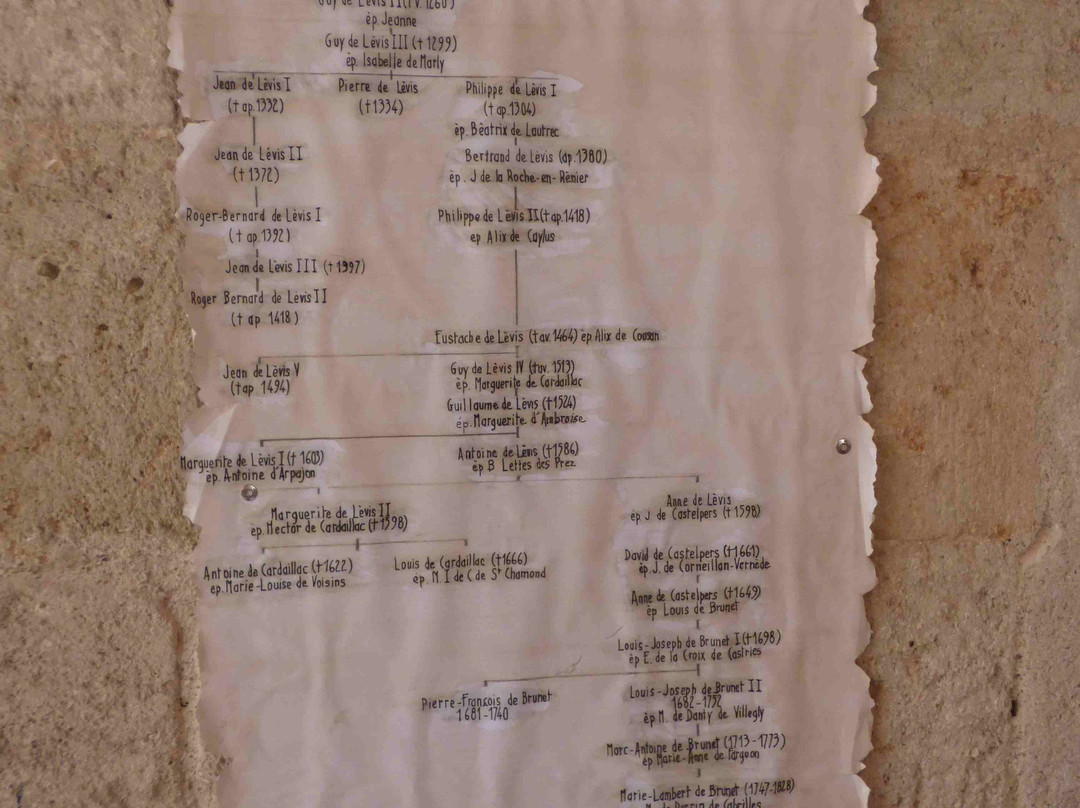 Guy de Lèvis II († v. 1260)
ép Jeanne
Guy de Lévis III († 1299)
ép. Isabelle de Marly
Jean de Lévis I
Pierre de Lévis
Philippe de Lévis I
(† ap. 1332)
(† 1334)
(† ap. 1304)
ép. Béatrix de Lautrec
Jean de Lévis II
Bertrand de Lévis (ap. 1380)
(† 1372)
ép. J de la Roche-en-Rénier
Roger-Bernard de Lévis I
Philippe de Lévis II († ap. 1418)
(† ap. 1392)
ep Alix de Caylus
Jean de Lévis III († 1397)
Roger Bernard de Lévis II
(† ap 1418)
Eustache de Lévis († av. 1464) ép Alix de Cousan
Jean de Lévis V
Guy de Lévis IV († av. 1513)
(† ap. 1494)
ép. Marguerite de Cardaillac
Guillaume de Lévis († 1524)
ép. Marguerite d'Amboise
Marguerite de Lévis I († 1603)
Antoine de Lévis († 1586)
ép. Antoine d'Arpajon
ép B Lettes des Prez
Marguerite de Lévis II
Anne de Lévis
ép. Hector de Cardaillac († 1598)
ép J. de Castelpers († 1598)
Antoine de Cardaillac († 1622)
Louis de Cardaillac († 1666)
David de Castelpers († 1661)
ép. Marie-Louise de Voisins
ép. M. I de C de St Chamond
ép. J. de Corneillan-Vernède
Anne de Castelpers († 1649)
ép Louis de Brunet
Louis-Joseph de Brunet I († 1698)
ép E. de la Croix de Castries
Pierre-François de Brunet
Louis-Joseph de Brunet II
1681-1740
1682-1752
ép M. de Danty de Villegly
Marc-Antoine de Brunet (1713-1773)
ép Marie-Anne de
Marie-Lambert de Brunet (1747-1828)
de Cabrilles